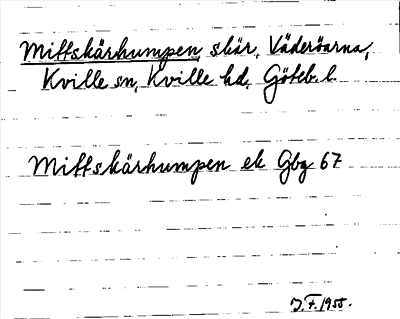 Mittskärhumpen, skär, Väderöarna,
Kville sn, Kville hd, Göteb. l.
Mittskärhumpen ek Gbg 67
J.F. 1955.